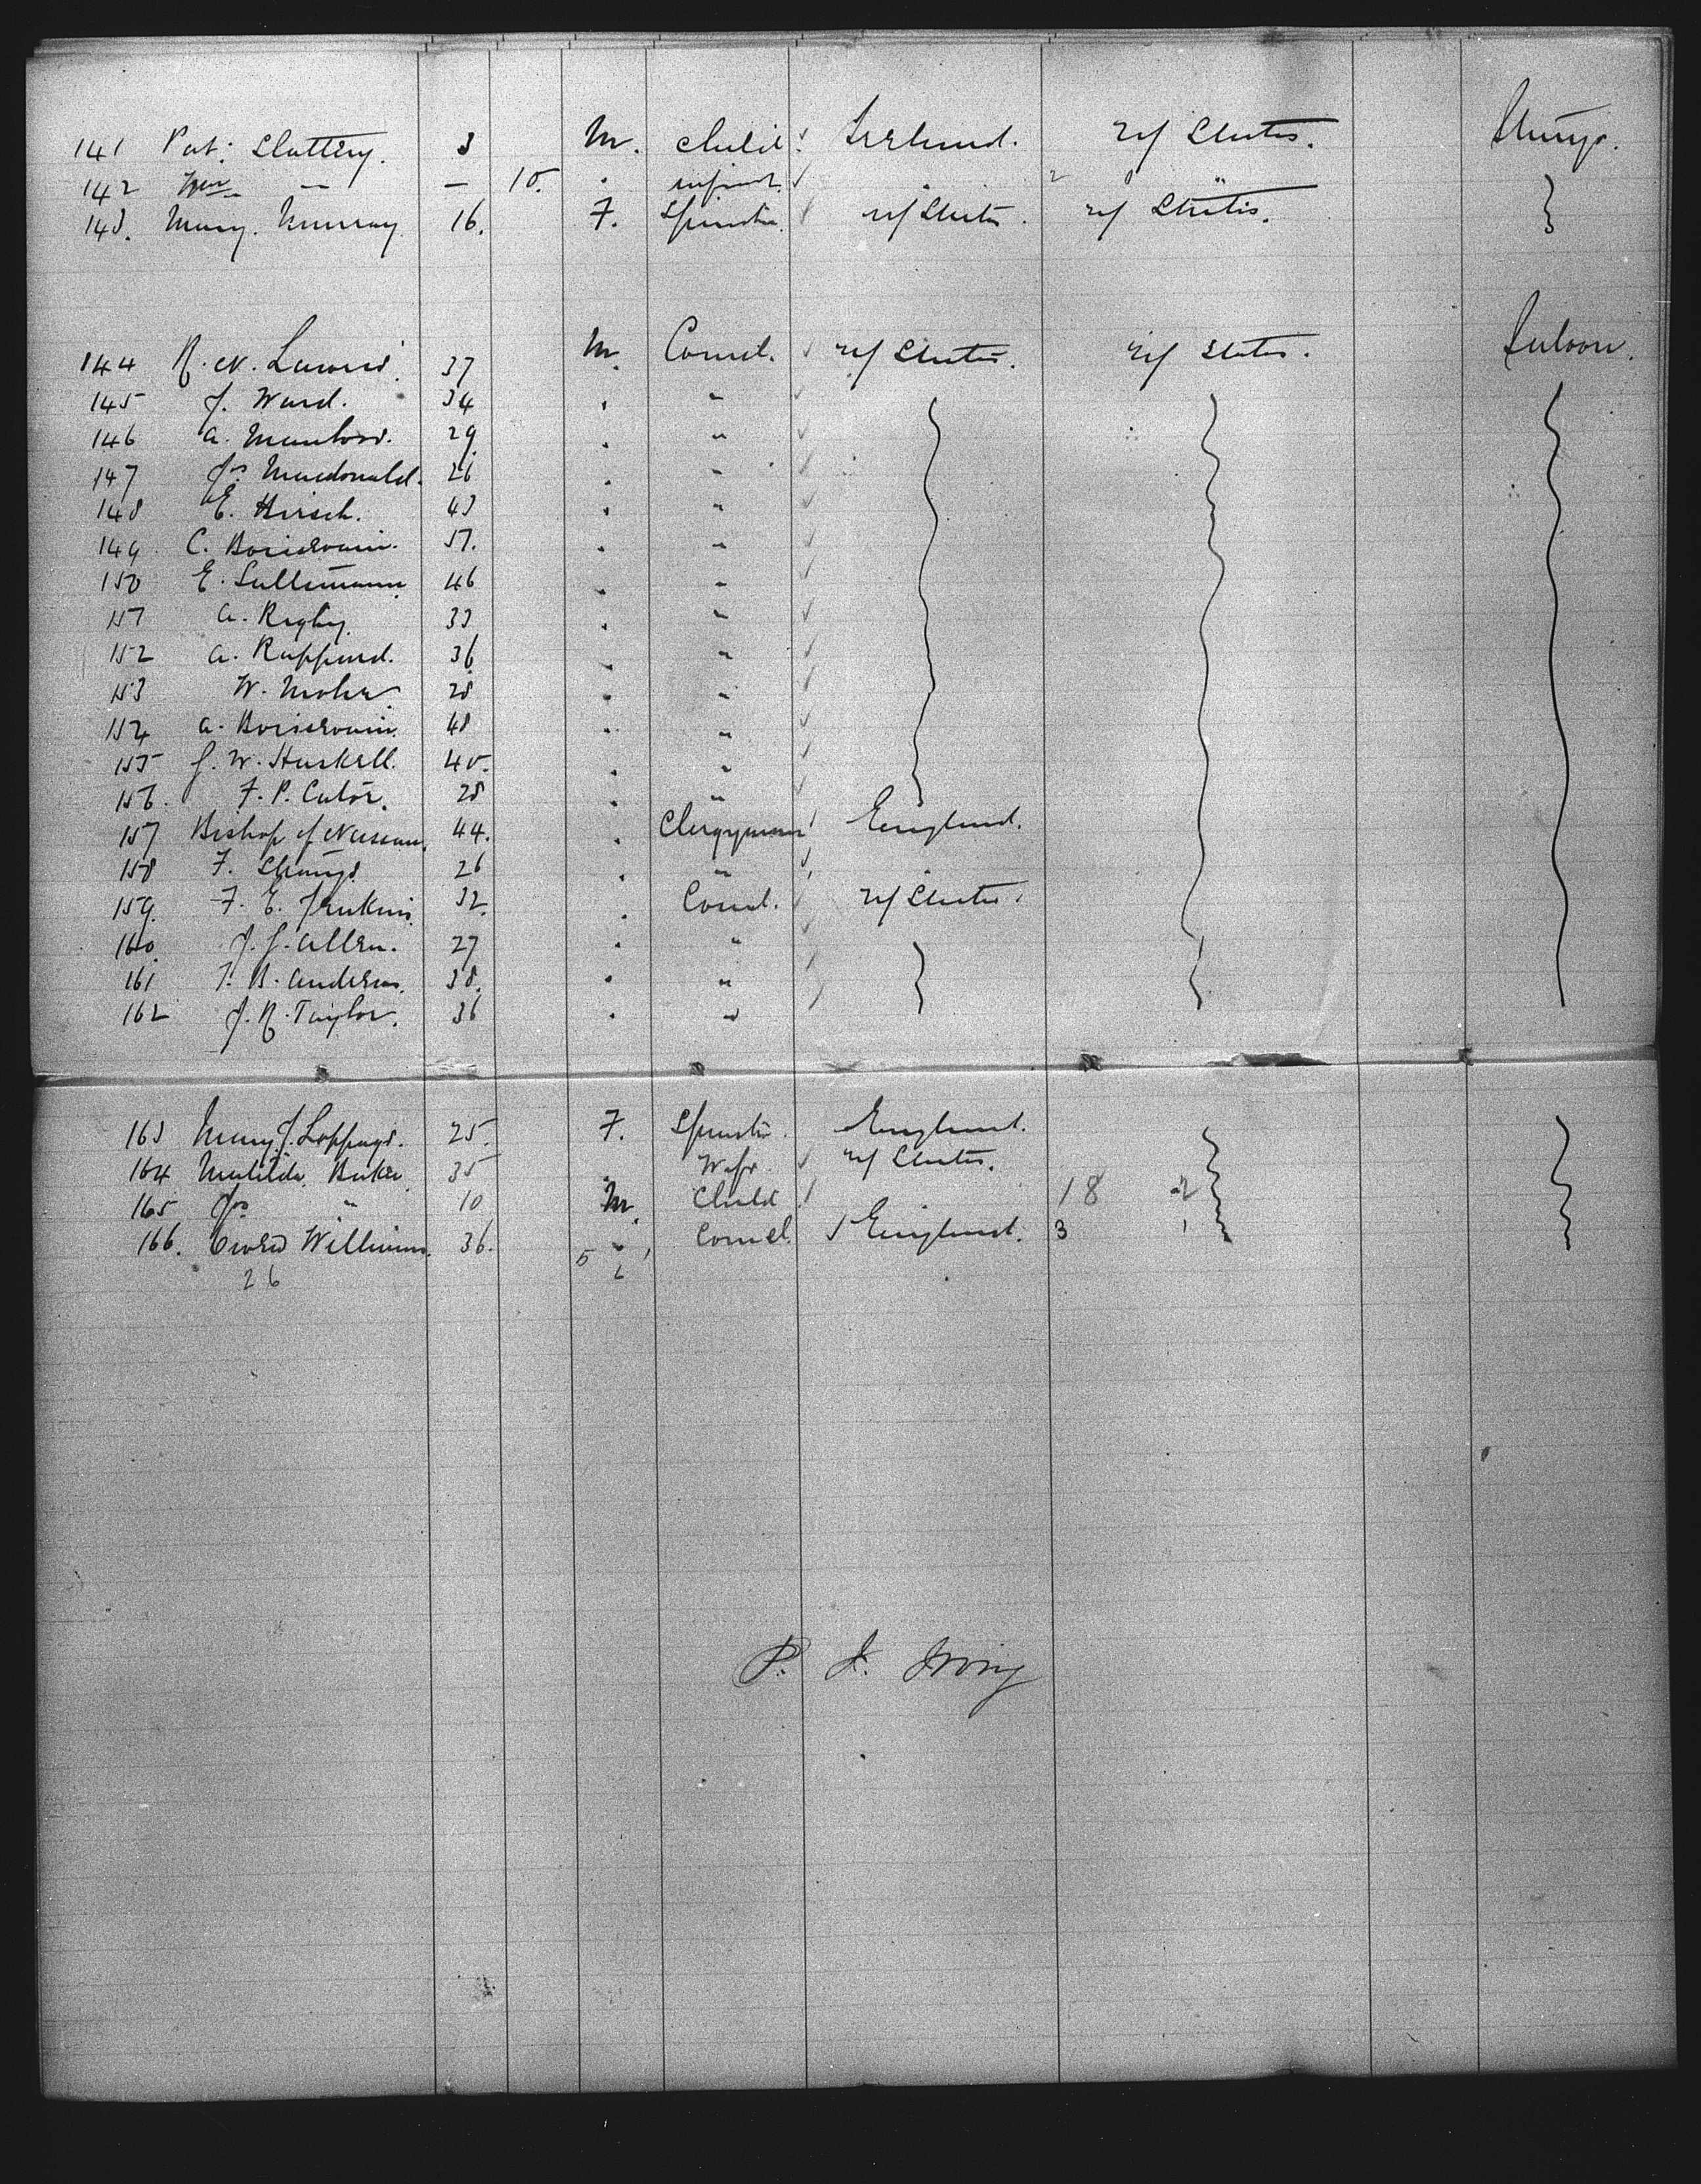 141 Pat: Slattery. 3 M. Child. Ireland. U/States. Steerage.
142 Wm — — 10. " infant. " "
143. Mary. Murray 16. F. Spinster. U/States. U/States.
144 R. N. 37 M. Coml. U/States. U/States. Saloon.
145 J. Ward. 34 " "
146 A. 29 " "
147 Jas Macdonald. 26 " "
148 E. Hirsch. 43 " "
149. C. Boisrouin. 57. " "
150 E. 46 " "
151 A. Rigby. 33 " "
152 A. 36 " "
153 W. Mohr. 28 " "
154 A. Boisrouin. 48 " "
155 J. W. Haskell. 45. " "
156. F. P. Cator. 28 " "
157 Bishop of Nassau. 44. " Clergyman England.
158 F. 26 " " "
159. F. E. Jenkins. 32. " Coml. U/States.
160. J. J. Allen. 27 " "
161 J. B. Anderson. 38. " "
162 J. R. Taylor. 36 " "
163 Mary J. 25. F. Spinster. England.
164 Matilda Baker 35 " Wife. U/States.
165 Jas " 10 M. Child 18 2
166. Owen Williams. 36. " Coml. England. 3 1
26 5
P. J. Irving